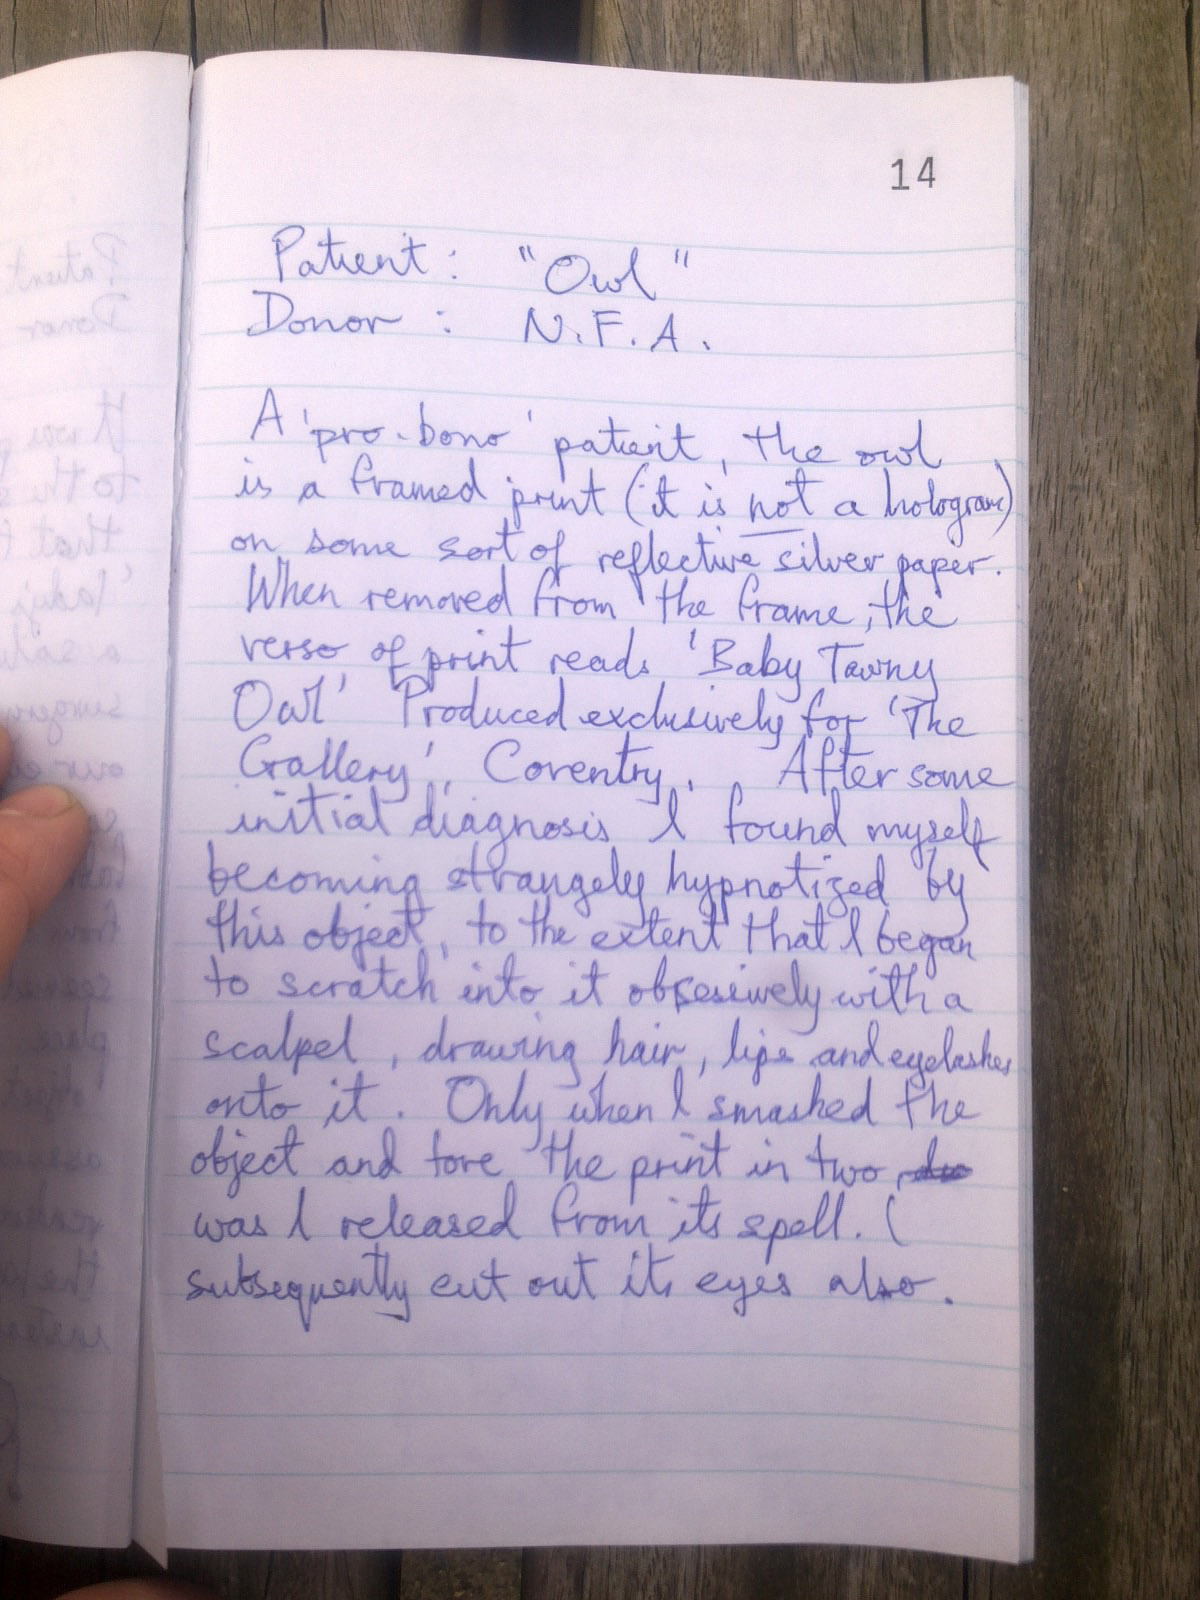 14
Patient : "Owl"
Donor : N.F.A.
A 'pro-bono' patient, the owl
is a framed print (it is not a hologram)
on some sort of reflective silver paper.
When removed from the frame, the
verso of print reads 'Baby Tawny
Owl' Produced exclusively for 'The
Gallery', Coventry. After some
initial diagnosis I found myself
becoming strangely hypnotized by
this object, to the extent that I began
to scratch into it obsesively with a
scalpel, drawing hair, lips and eyelashes
onto it. Only when I smashed the
object and tore the print in two,
was I released from its spell. I
subsequently cut out its eyes also.
Patient
Donor
It was
to th
that
'lady